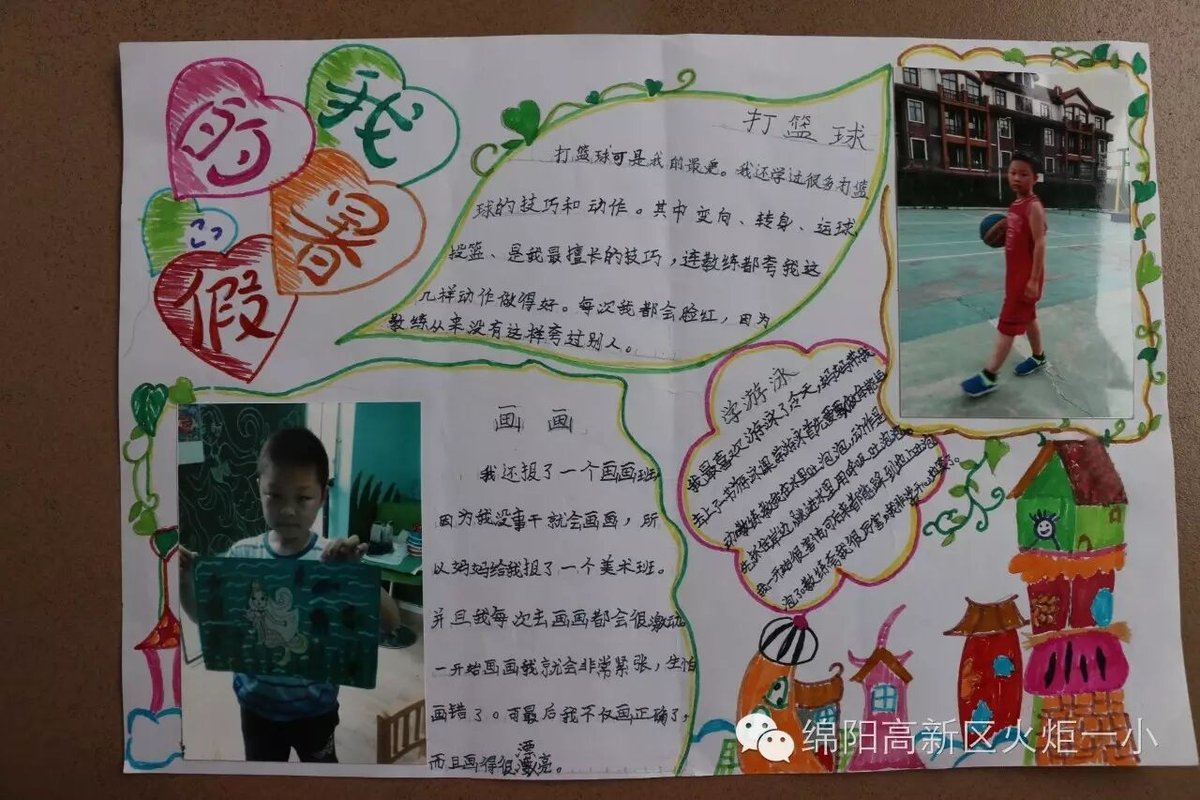 我
的
暑
假
打篮球
打篮球可是我的最爱。我还学过很多打篮
球的技巧和动作。其中变向、转身、运球、
投篮、是我最擅长的技巧，连教练都夸我这
几样动作做得好。每次我都会脸红，因为
教练从来没有这样夸过别人。
画画
我还报了一个画画班
因为我没事干就会画画，所
以妈妈给我报了一个美术班。
并且我每次去画画都会很激动
一开始画画我就会非常紧张，生怕
画错了。可最后我不仅画正确了，
而且画得很漂亮。
学游泳
我最喜欢游泳了今天，妈妈带我
去上了一节游泳课，学游泳首先要
绵阳高新区火炬一小